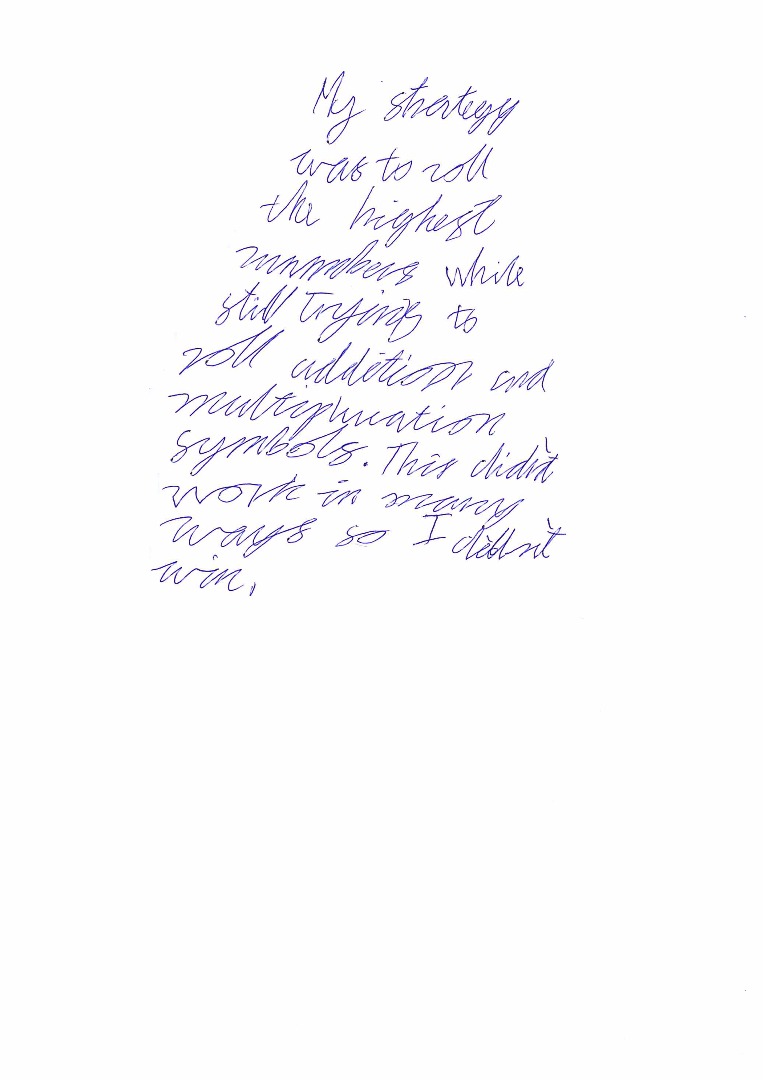 My strategy
was to roll
the highest
numbers while
still trying to
roll addition and
multiplication
symbols. This didn't
work in many
ways so I didn't
win.